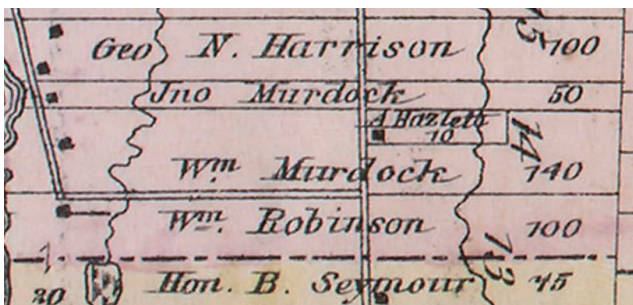 Geo N. Harrison 100
15
Jno Murdock 50
A Hazlett
10
14
Wm Murdock 140
Wm Robinson 100
13
Hon. B. Seymour 45